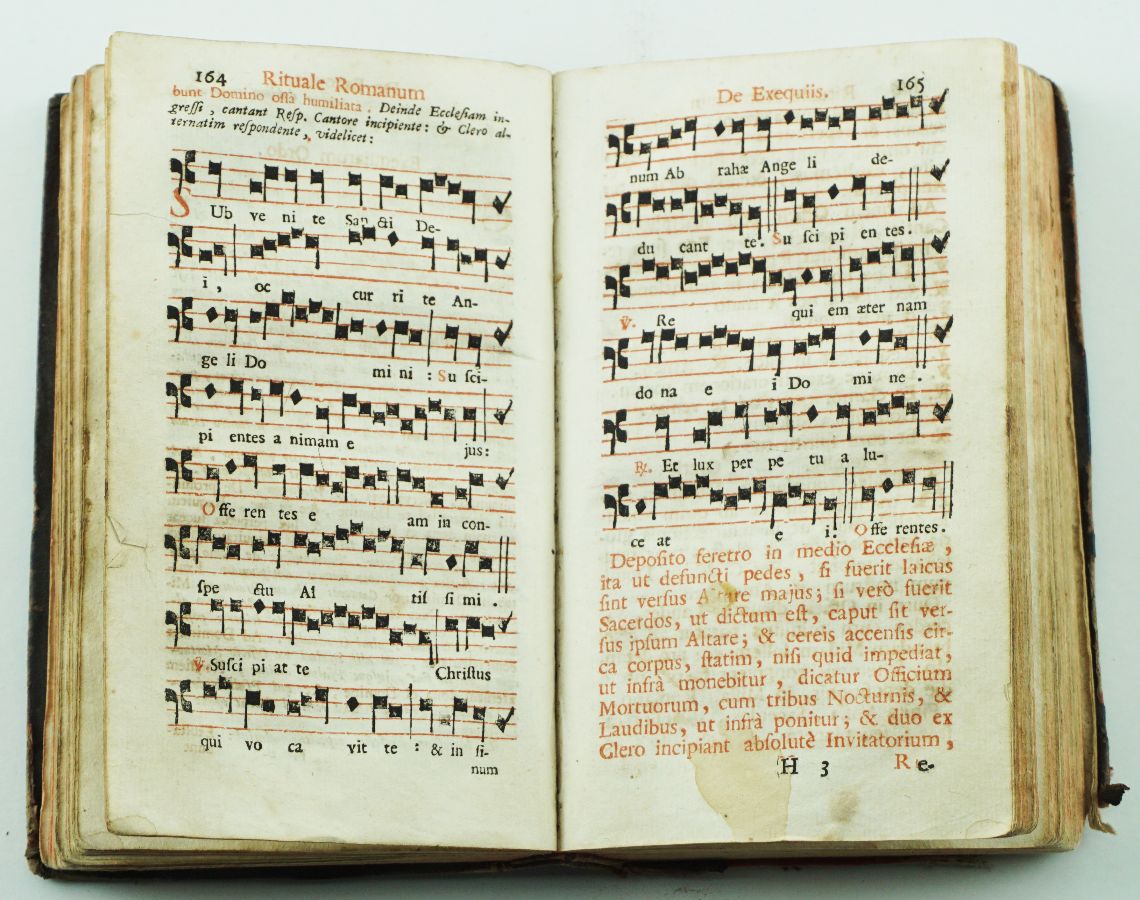 164 Rituale Romanum
bunt Domino ossa humiliata. Deinde Ecclesiam in-
gressi, cantant Resp. Cantore incipiente: & Clero al-
ternatim respondente, videlicet:
SUb ve ni te San cti De-
i, oc cur ri te An-
ge li Do mi ni : Su sci-
pi entes a nimam e jus:
Offe ren tes e am in con-
spe ctu Al tis si mi.
℣. Susci pi at te Christus
qui vo ca vit te : & in si-
num
De Exequiis. 165
num Ab rahæ Ange li de-
du cant te. Su sci pi en tes.
℣. Re qui em æter nam
do na e i Do mi ne.
℟. Et lux per pe tu a lu-
ce at e i: Offe rentes.
Deposito feretro in medio Ecclesiæ,
ita ut defuncti pedes, si fuerit laicus
sint versus Altare majus; si verò fuerit
Sacerdos, ut dictum est, caput sit ver-
sus ipsum Altare; & cereis accensis cir-
ca corpus, statim, nisi quid impediat,
ut infrà monebitur, dicatur Officium
Mortuorum, cum tribus Nocturnis, &
Laudibus, ut infrà ponitur; & duo ex
Clero incipiant absolutè Invitatorium,
H 3 Re-